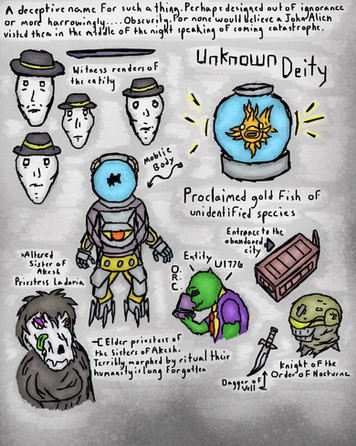 A deceptive name for such a thing. Perhaps designed out of ignorance
or more harrowingly.... Obscurity. For none would believe a John Alien
visted them in the middle of the night speaking of coming catastrophe.
Witness renders of
the entity
Unknown
Deity
Moblie
Body
Proclaimed gold Fish of
unidentified species
Entrance to the
abandoned
city
*Altered
Sister of
Akesh
Priestess Ladonia
Entity
U1776
O.
R.
C.
Elder priestess of
the Sisters of Akesh.
Terribly morphed by ritual their
humanity is long forgotten
Dagger of
Vell
Knight of the
Order of Nocturne